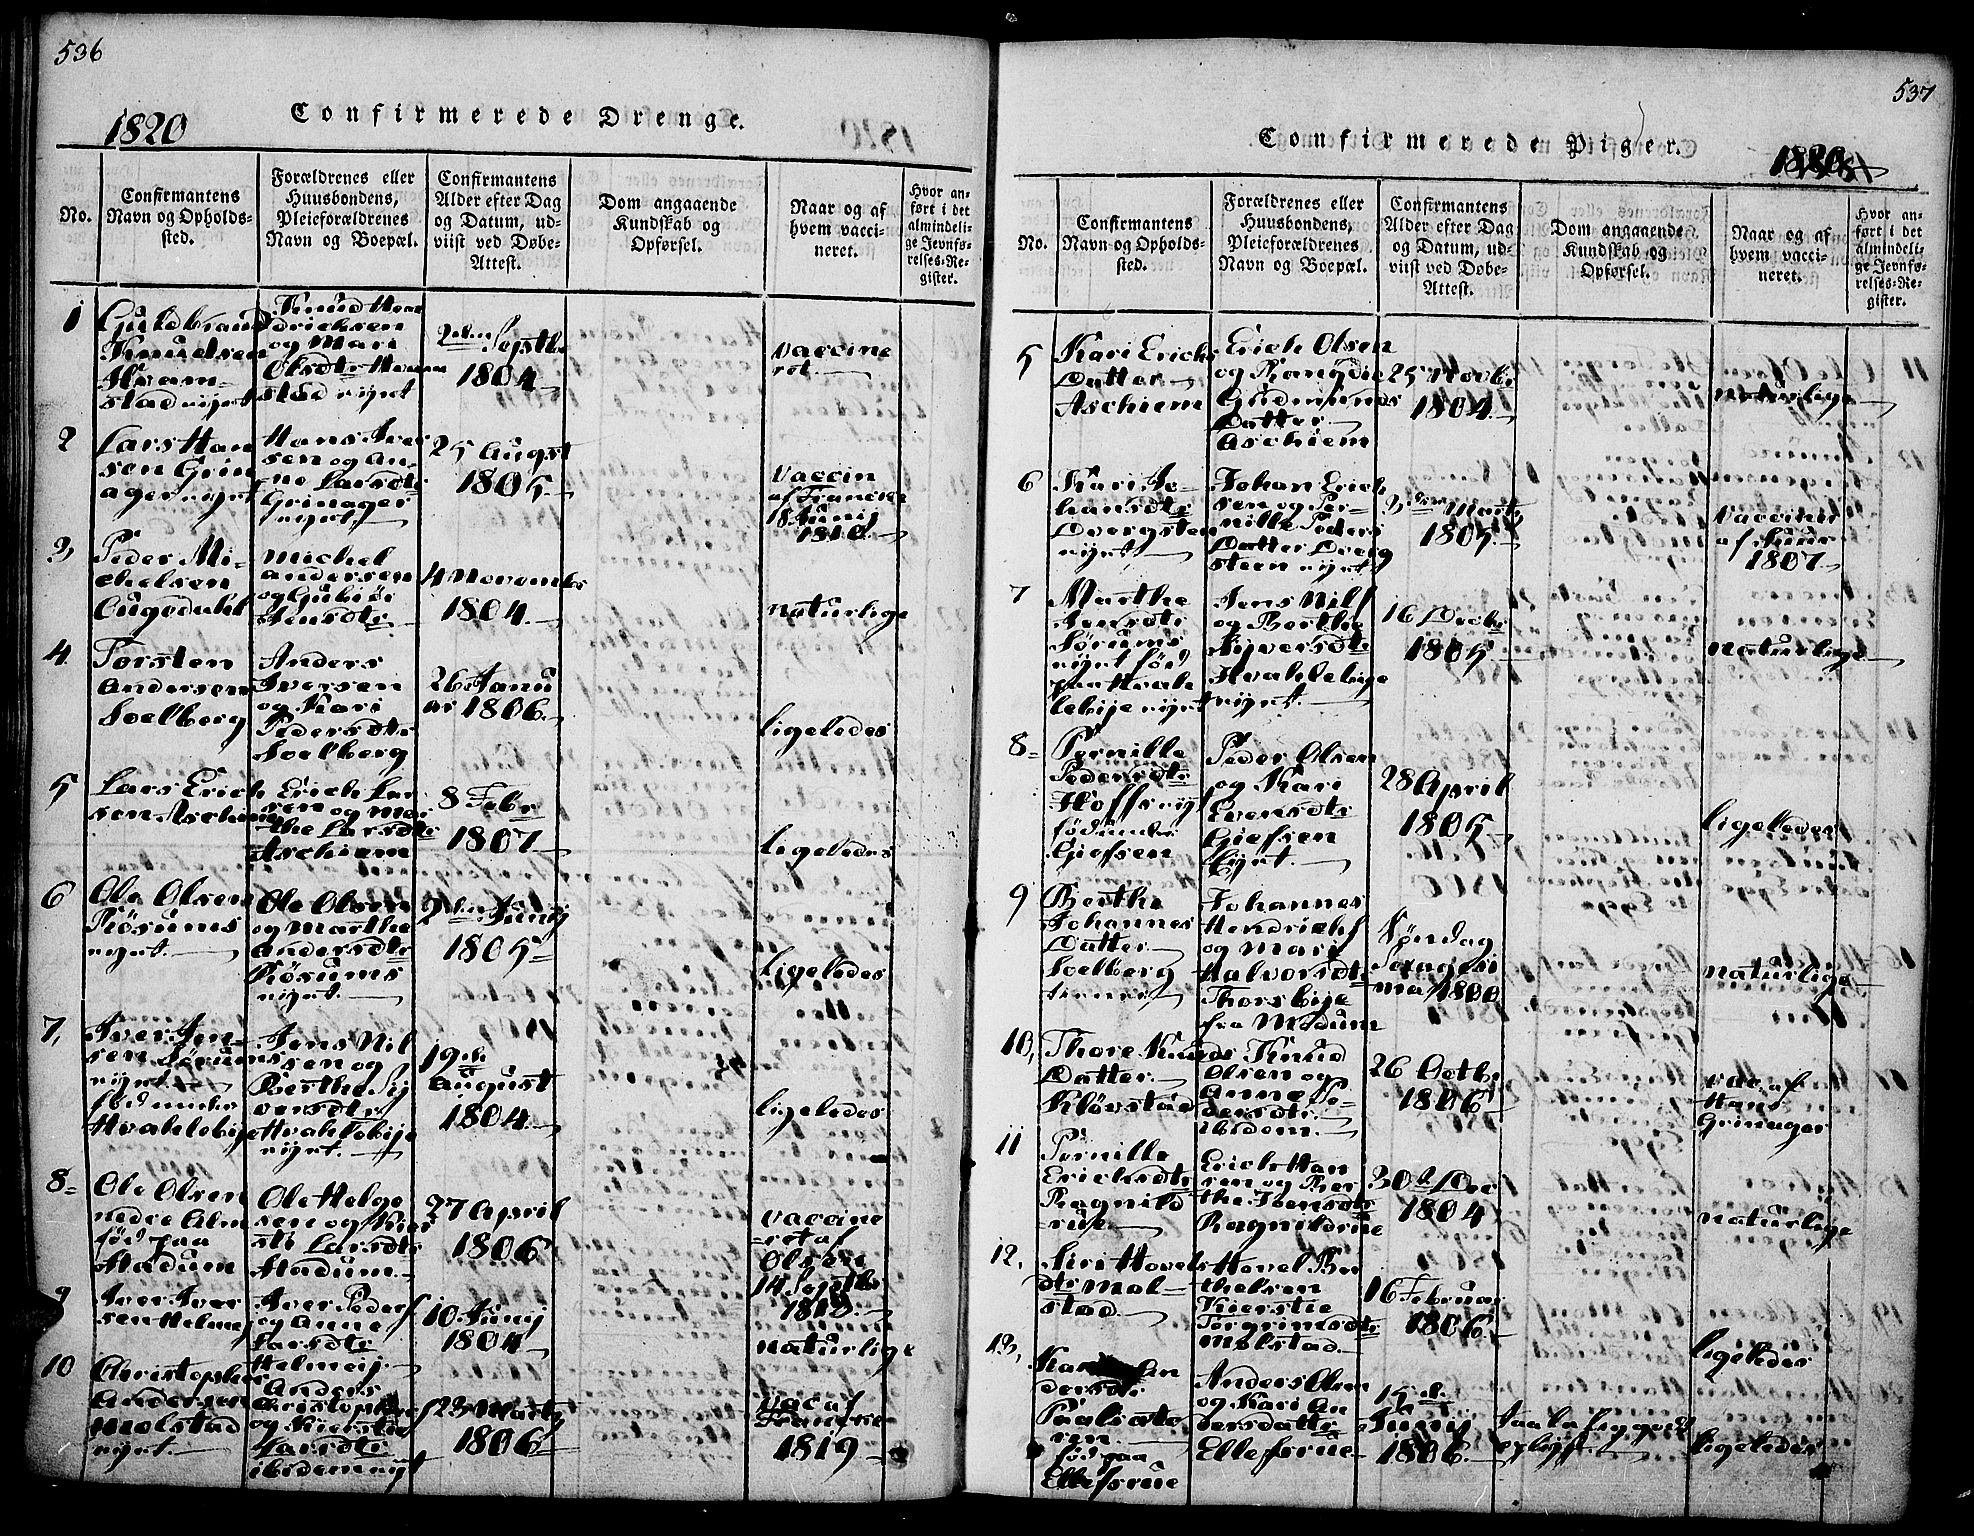 536
1820
Confirmerede Drenge.
No.
Confirmantens
Navn og Opholds-
sted.
Forældrenes eller
Huusbondens,
Pleieforældrenes
Navn og Boepæl.
Confirmantens
Alder efter Dag
og Datum, ud-
viist ved Døbe-
Attest.
Dom angaaende
Kundskab og
Opførsel.
Naar og af
hvem vacci-
neret.
Hvor an-
ført i det
almindeli-
ge Jevnfø-
relses-Re-
gister.
1
Guldbrand
Knudsen
Hvam-
stad nijnt
Knud
drichsen
og Mari
Olsdtr
stad nijnt
2den Septbr
1804
vaccine
ret
2
Lars Han
sen Grin
ager nijnt
Hans Iver
sen og An
ne Larsdtr
Grinager
nijnt
25 Augst
1805
vaccin
af
18 Junij
1810
3
Peder Mi-
chelsen
Michel
Andersen
og Gubiør
Jensdtr
4 Novembr
1804
naturlige
4
Torsten
Andersen
Soelberg
Anders
Iversen
og Kari
Pedersdtr
Soelberg
26 Janu
ar 1806
ligeledes
5
Lars Erich
sen Aschiem
Erich Lar
sen og Mar
the Larsdtr
Aschiem
8 Febr
1807
ligeledes
6
Ole Olsen
Røsums
nijnt
Ole Olsen
og Marthe
Andersdtr
Røsums
nijnt
den Junij
1805
ligeledes
7,
Iver Jen-
sen Sørums
nijnt
fød under
Hvakelebije
Jens Nil
sen og
Berthe Sij
versdtr
Hvakelebije
nijnt
19de
August
1804
ligeledes
8
Ole Olsen
nedre Alm
fød paa
Hadum
Ole Helge
sen og Kier
sti Larsdtr
Hadum
27 April
1806
vaccine
ret af
Olsen
14 Septbr
9
Iver Iver
sen Helmej
Iver Peders
og Anne
Larsdtr
Helmeij
10 Junij
1804
naturlige
10
Christopher
Andersen
Molstad
nijnt
Anders
Christophers
og Kierstie
Larsdtr
ibidem nijt
23 Marty
1806
vac af
1819
537
Confirmerede Piger.
No.
Confirmantens
Navn og Opholds-
sted.
Forældrenes eller
Huusbondens,
Pleieforældrenes
Navn og Boepæl.
Confirmantens
Alder efter Dag
og Datum, ud-
viist ved Døbe-
Attest.
Dom angaaende
Kundskab og
Opførsel.
Naar og af
hvem vacci-
neret.
Hvor an-
ført i det
almindeli-
ge Jevnfø-
relses-Re-
gister.
5
Kari Erichs
Datter
Aschiem
Erich Olsen
og Rangdie
Gudmunds
Datter
Aschiem
25 Novbr
1804
naturlige
6
Kari Jo-
hansdtr
Dvergsten
nijnt
Johan Erich
sen og Per-
nille Peders
Datter Dverg
steen nijnt
3den Marty
1805
vacciner
af
1807
7
Marthe
Jensdtr
Sørums
nijnt fød
paa Hvake
lebije nijnt
Jens Nils
og Berthe
Sijversdtr
Hvakkebije
nijnt
16 Decbr
1805
naturlige
8
Pernille
Pedersdtr
Hoffs nij
fød under
Giefsen
Peder Olsen
og Kari
Evensdtr
Giefsen
Eijnt
28 April
1805
ligeledes
9
Berthe
Johannes
Datter
Soelberg
Johannes
Hendrichs
og Mari
Halvorsdtr
Thorsbije
fra Modum
Søndag
Sexagesi
ma 1800
naturlige
10,
Thore Knuds
Datter
Kløvstad
Knud
Olsen og
Anne Pe-
dersdtr
ibidem
26 Octbr
1806
vac af
Hans
Grinager
11
Pernille
Erichsdtr
Ragnild
rue
Erich Han
sen og Ber
the Jensdtr
Ragnildrue
30 Dec
1804
naturlige
12,
Siri Hovels
dtr Mol-
stad
Hovel Ber
thelsen
Kierstie
Torgrimsdtr
Molstad
16 Februar
1806
ligeledes
13,
dersdtr
fød paa
Ellefsrue
Anders Olsen
og Kari An
dersdatter
Ellefsrue
15de
Junij
1806
ligeledes